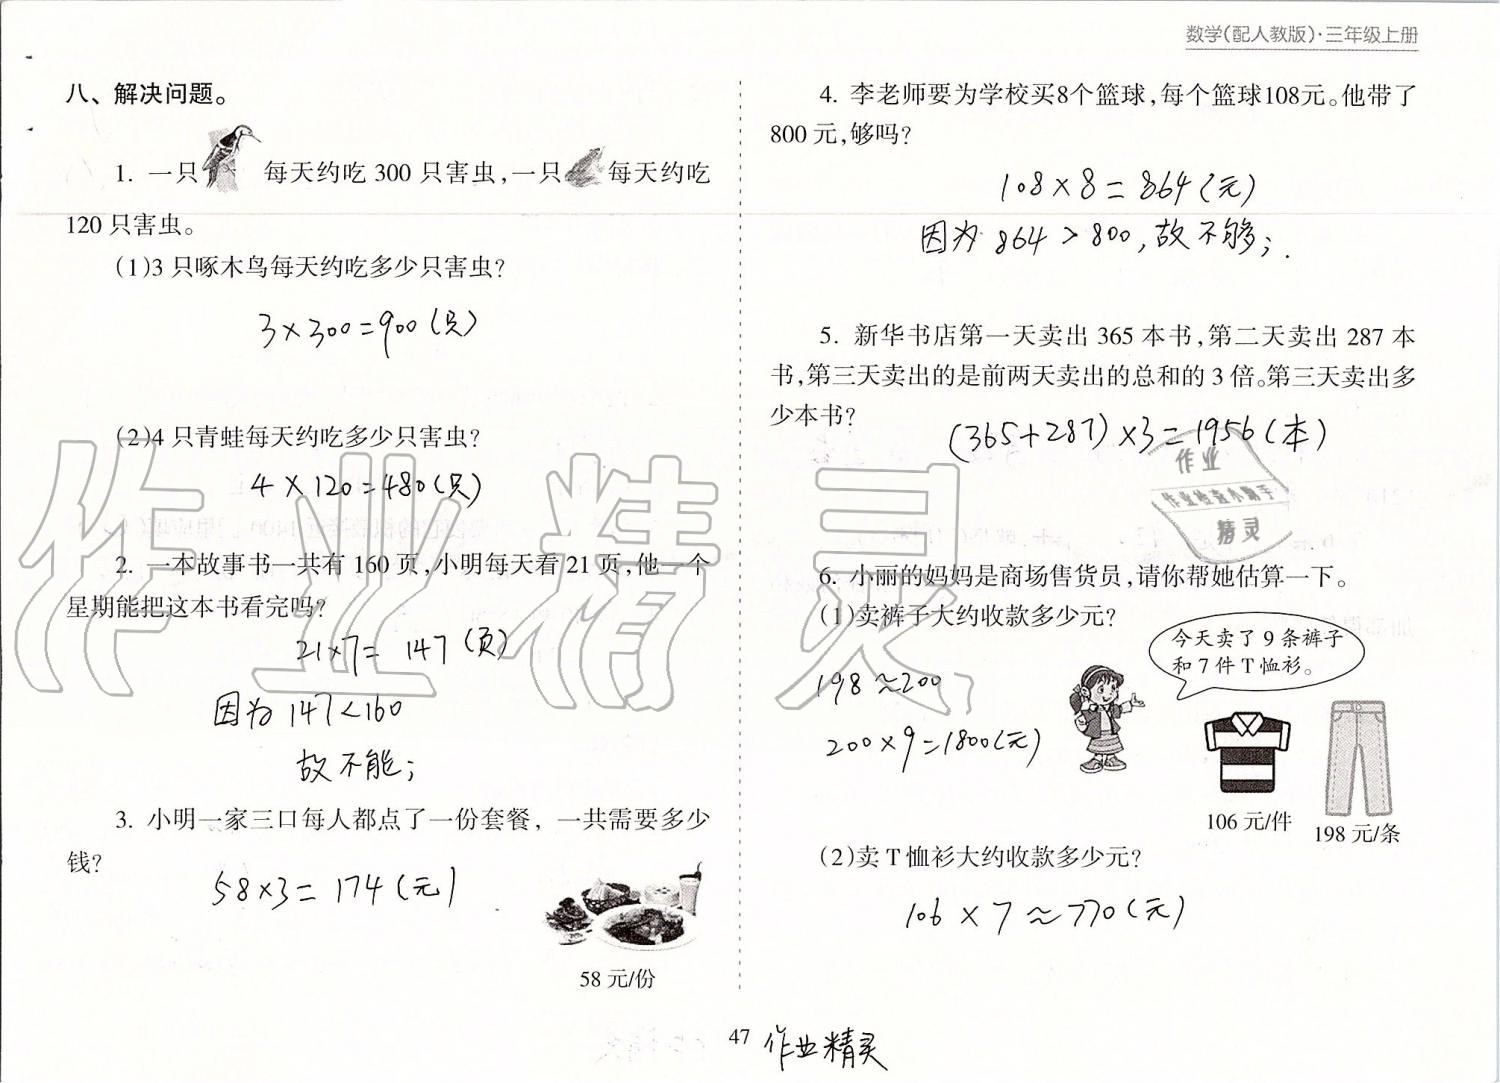 数学(配人教版)·三年级上册
八、解决问题。
1. 一只 每天约吃 300 只害虫,一只 每天约吃
120 只害虫。
(1)3 只啄木鸟每天约吃多少只害虫?
3×300=900(只)
(2)4 只青蛙每天约吃多少只害虫?
4×120=480(只)
2. 一本故事书一共有 160 页,小明每天看 21 页,他一个
星期能把这本书看完吗?
21×7= 147(页)
因为 147<160
故不能;
3. 小明一家三口每人都点了一份套餐, 一共需要多少
钱?
58×3= 174(元)
58 元/份
4. 李老师要为学校买8个篮球,每个篮球108元。他带了
800 元,够吗?
108×8=864(元)
因为 864>800,故不够;.
5. 新华书店第一天卖出 365 本书,第二天卖出 287 本
书,第三天卖出的是前两天卖出的总和的 3 倍。第三天卖出多
少本书?
(365+287)×3=1956(本)
作业
作业检查小助手
精灵
6. 小丽的妈妈是商场售货员,请你帮她估算一下。
(1)卖裤子大约收款多少元?
今天卖了 9 条裤子
和 7 件 T 恤衫。
198≈200
200×9=1800(元)
106 元/件
198 元/条
(2)卖 T 恤衫大约收款多少元?
106×7≈770(元)
作业精灵
47
作业精灵